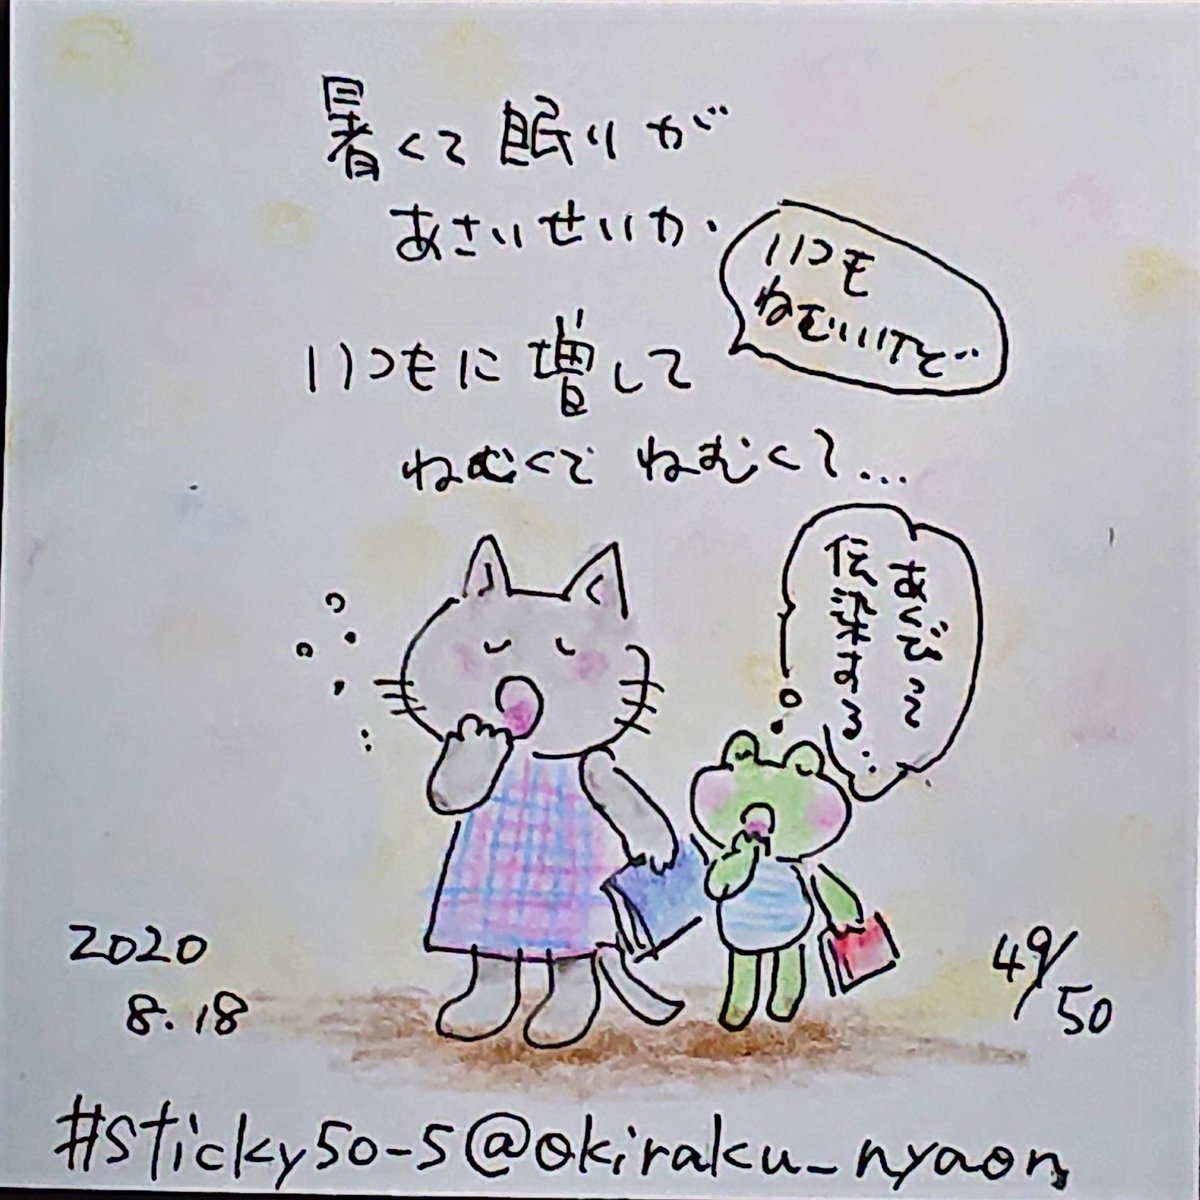 暑くて眠りが
あさいせいか、
いつも
ねむいけど…
いつもに増して
ねむくて ねむくて…
あくびって
伝染する…
2020
8.18
49/50
#sticky50-5@okiraku_nyaon